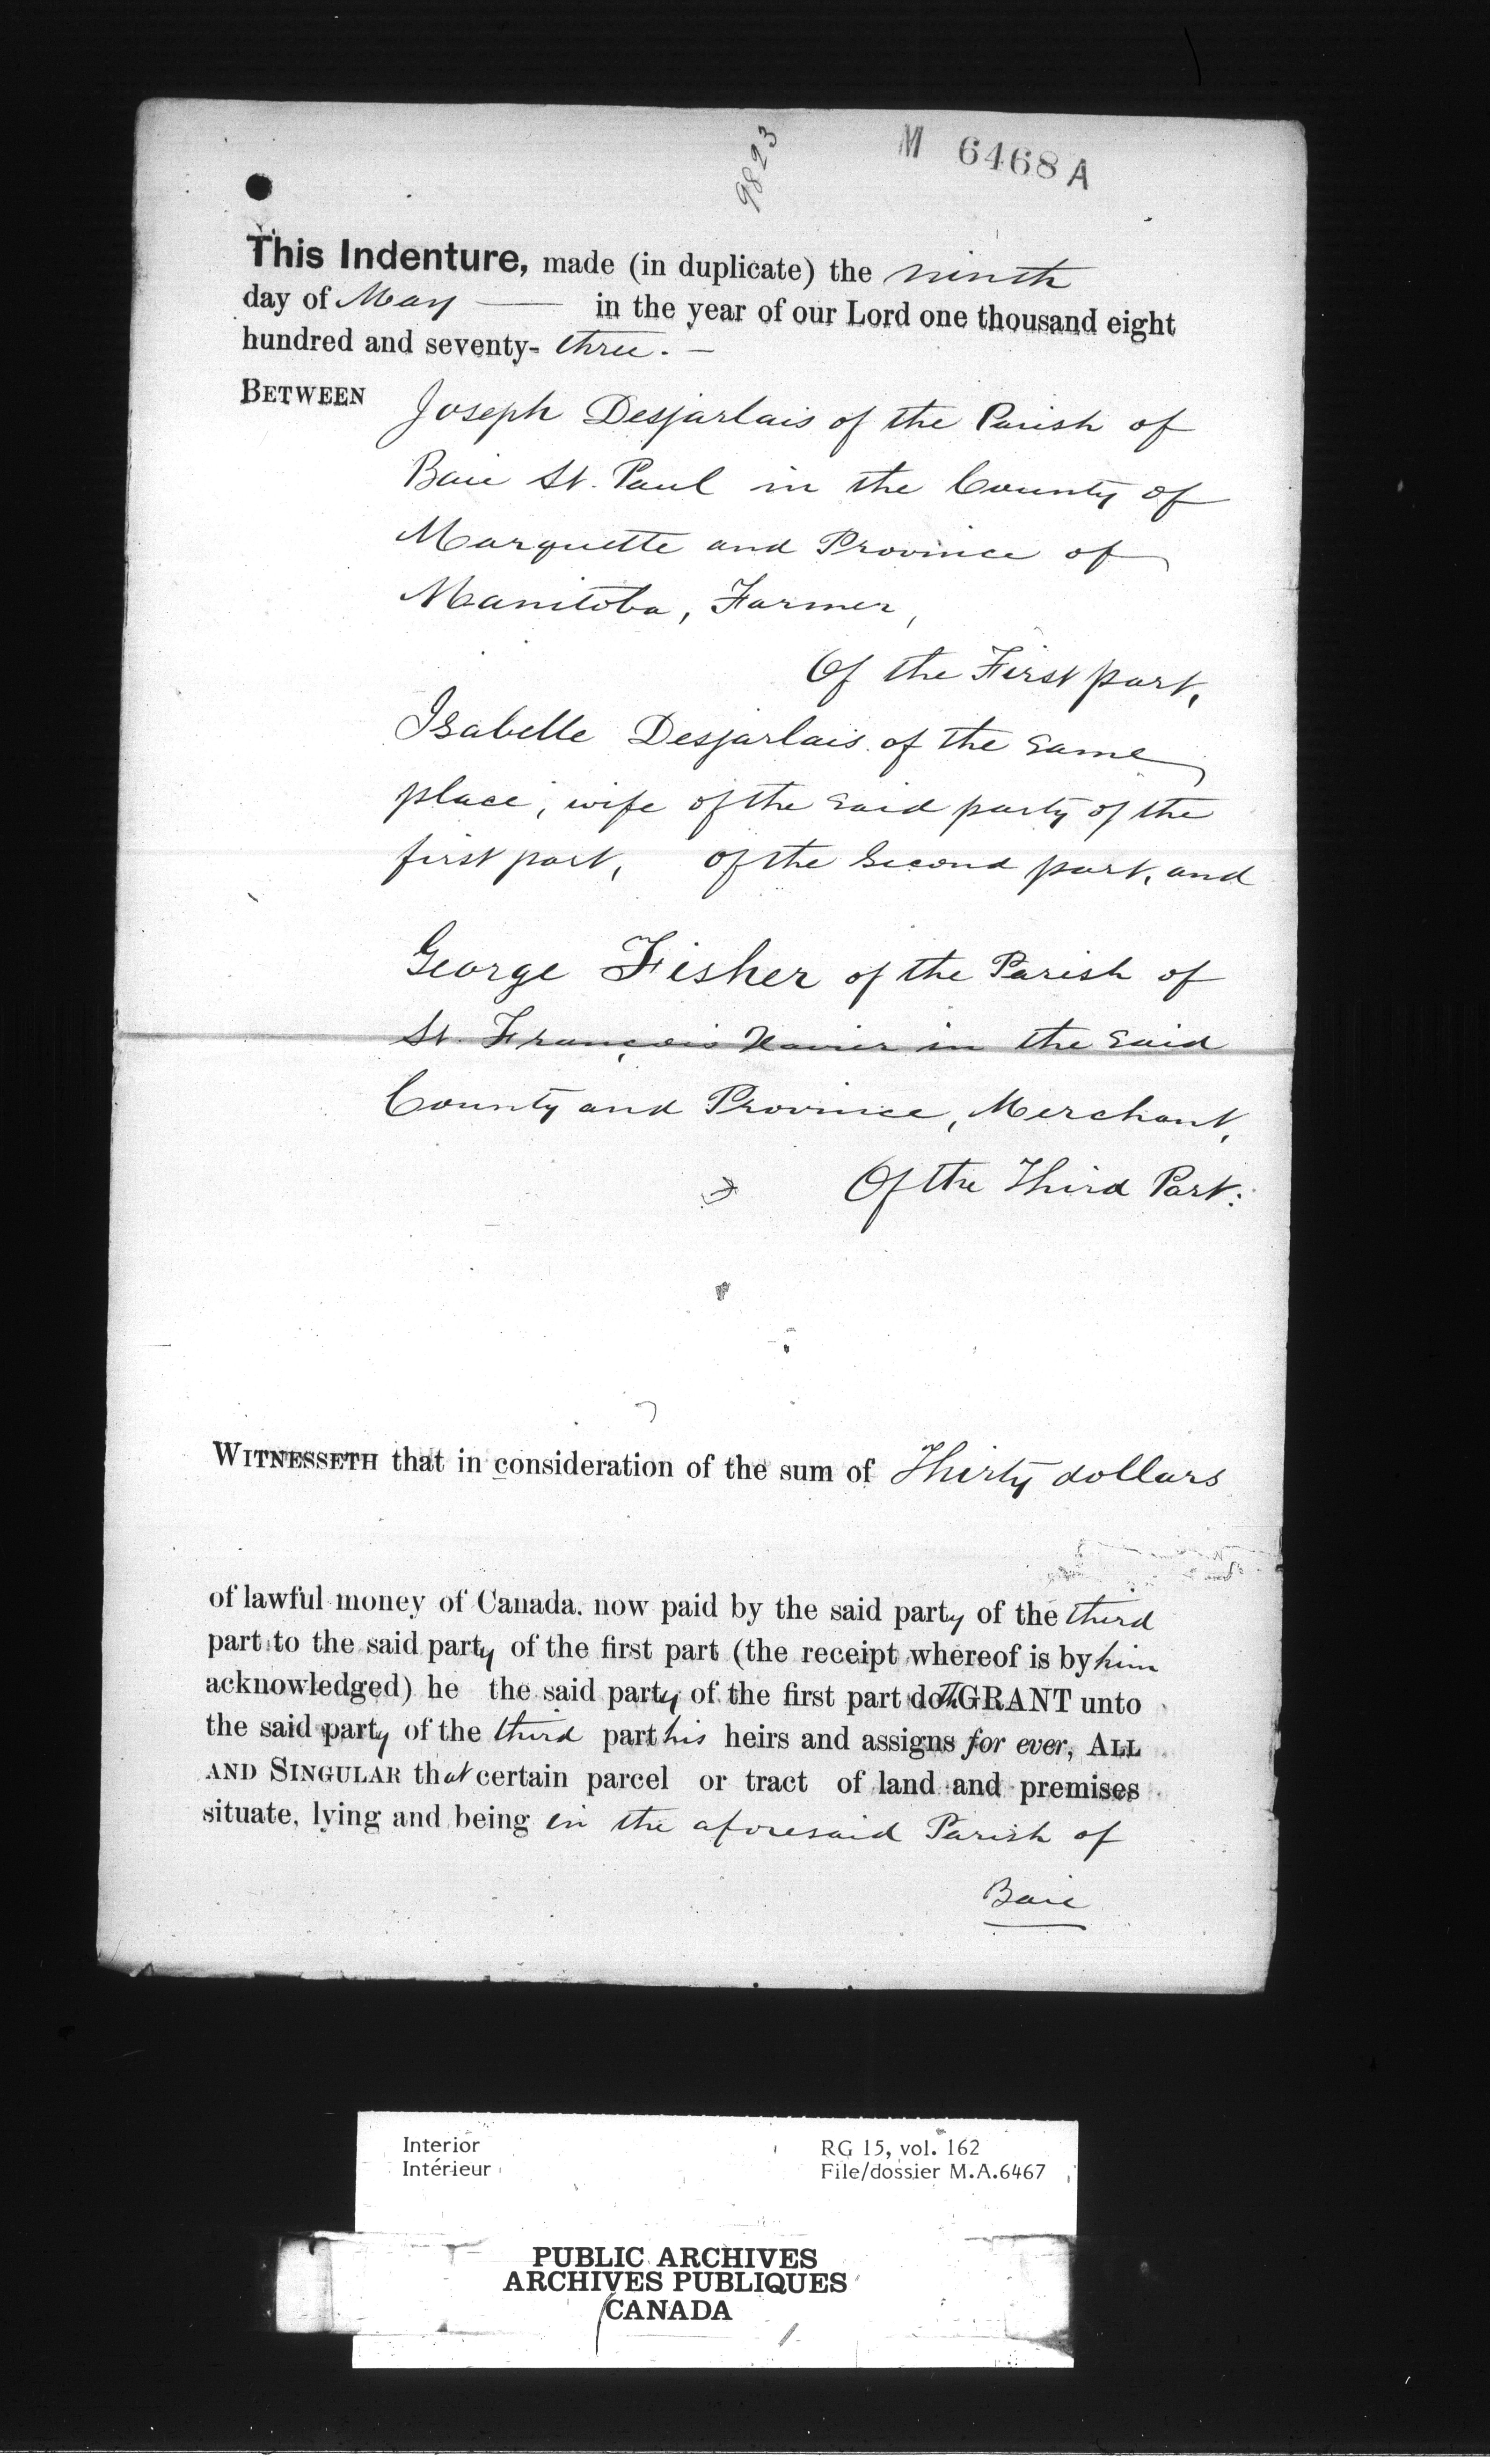 9823
M 6468 A
This Indenture, made (in duplicate) the ninth
day of May — in the year of our Lord one thousand eight
hundred and seventy- three. —
BETWEEN
Joseph Desjarlais of the Parish of
Baie St. Paul in the County of
Marquette and Province of
Manitoba, Farmer,
Of the First part,
Isabelle Desjarlais of the same
place, wife of the said party of the
first part, of the Second part, and
George Fisher of the Parish of
St. François Xavier in the said
County and Province, Merchant,
Of the Third Part:
WITNESSETH that in consideration of the sum of Thirty dollars
of lawful money of Canada. now paid by the said party of the third
part to the said party of the first part (the receipt whereof is by him
acknowledged) he the said party of the first part doth GRANT unto
the said party of the third part his heirs and assigns for ever, ALL
AND SINGULAR that certain parcel or tract of land and premises
situate, lying and being in the aforesaid Parish of
Baie
Interior
Intérieur
RG 15, vol. 162
File/dossier M.A.6467
PUBLIC ARCHIVES
ARCHIVES PUBLIQUES
CANADA